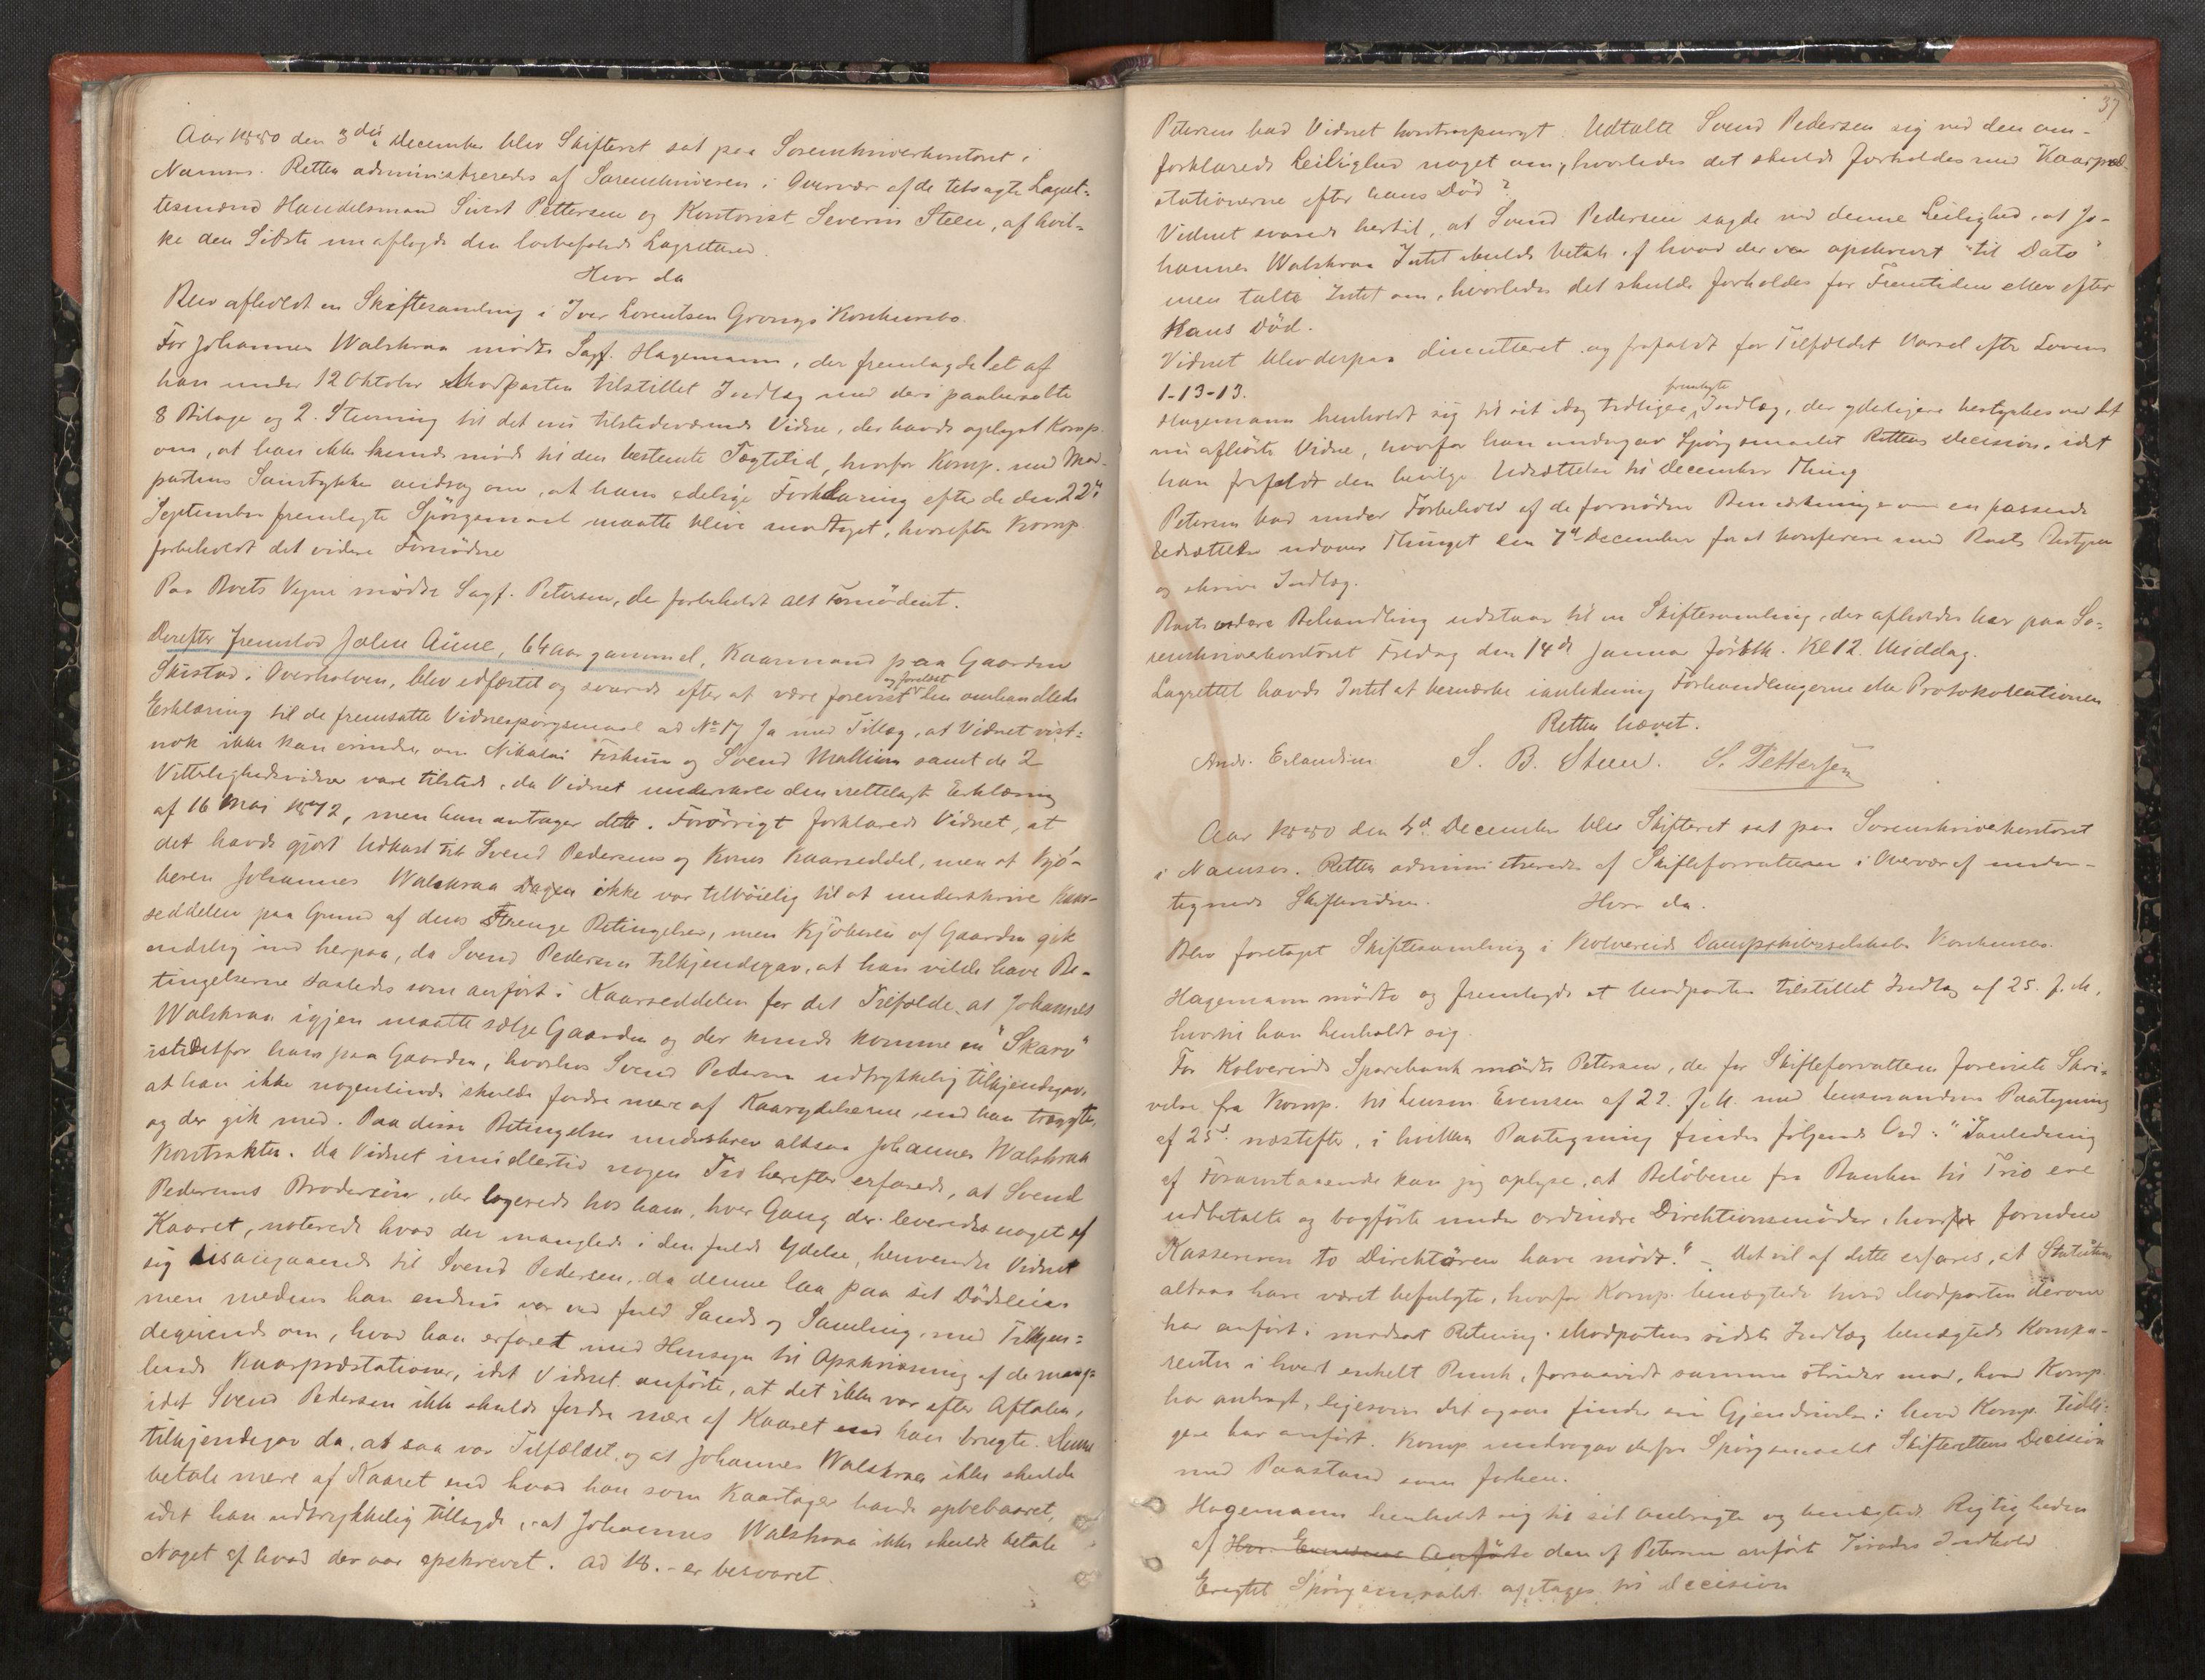 Aar 1880 den 3die December blev Skifteret sat paa Sorenskriverkontoret i
Namsos. Retten administreredes af Sorenskriveren i Overvær af de tilsagte Lagret-
tesmænd Handelsmand Sivert Pettersen og Kontorist Severin Steen, af hvil-
ke den Sidste nu aflagde den lovbefalede Lagretteed.
Hvor da
Blev afholdt en Skiftesamling i Iver Lorentsen Grongs Konkursbo.
For Johannes Walskraa mødte Sagf. Hagemann, der fremlagde 1 et af
han under 12 Oktober Modparten tilstillet Indlæg med deri paaberaabte
8 Bilage og 2. Stevning til det nu tilstedeværende Vidne, der havde oplyst Komp.
om, at han ikke kunde møde til den bestemte Tægtetid, hvorfor Komp. med Mod-
partens Samtykke androg om, at hans edelige Forklaring efter de den 22de
September fremlagte Spörgsmaal maatte blive modtaget, hvorefter Komp.
forbeholdt det videre Fornödne
Paa Boets Vegne mödte Sagf. Petersen, der forbeholdt alt Fornödent.
Derefter fremstod John Aune, 64 aar gammel, Kaarmand paa Gaarden
Skistad i Overhalven, blev edfæstet og svarede efter at være forevist og forelæst den omhandlede
Erklæring til de fremsatte Vidnespörgsmaal ad No 17 Ja med Tillæg, at Vidnet vist-
nok ikke kan erindre om Nikolai Fiskum og Svend Mellium samt de 2
Vitterlighedsvidner vare tilstede, da Vidnet underskrev den rettelagte Erklæring
af 16 Mai 1872, men han antager dette. Forövrigt forklarede Vidnet, at
det havde gjort Udkast til Svend Pedersens og Kones Kaarseddel, men at Kjö-
beren Johannes Walskraa Dagen ikke var tilböielig til at underskrive Kaar-
seddelen paa Grund af dens strenge Betingelser, men Kjöberen af Gaarden gik
endelig ind herpaa, da Svend Pedersen tilkjendegav, at han vilde have Be-
tingelserne saaledes som anfört i Kaarseddelen for det Tilfælde, at Johannes
Walskraa igjen maatte sælge Gaarden og der kunde komme en "Skarv"
istedetfor ham paa Gaarden, hvorhos Svend Pedersen udtrykkelig tilkjendegav,
at han ikke nogensinde skulde fordre mere af Kaarydelserne, end han trængte,
og der gik med. Paa disse Betingelser underskrev altsaa Johannes Walskraa
Kontrakten. Da Vidnet imidlertid nogen Tid herefter erfarede, at Svend
Pedersens Brodersön, der logerede hos ham, hver Gang der leveredes noget af
Kaaret, noterede hvad der manglede i den fulde Ydelse, henvendte Vidnet
sig desangaaende til Svend Pedersen, da denne laa paa sit Dödsleie
men medens han endnu var ved fuld Sands og Samling, med Tilkjen-
degivende om, hvad han erfaret med Hensyn til Opskrivning af de mang-
lende Kaarpræstationer, idet Vidnet anförte, at det ikke var efter Aftalen,
idet Svend Pedersen ikke skulde fordre mere af Kaaret end han brugte. Denne
tilkjendegav da, at saa var Tilfældet, og at Johannes Walskraa ikke skulde
betale mere af Kaaret end hvad han som Kaartager havde opbebaaret,
idet han udtrykkelig tillagde, at Johannes Walskraa ikke skulde betale
Noget af hvad der var opskrevet. Ad 18.- er besvaret.
37
Petersen bad Vidnet kontraspurgt: Udtalte Svend Pedersen sig ved den om-
forklarede Leilighed noget om, hvorledes det skulde forholdes med Kaarpræ-
stationerne efter hans Död?
Vidnet svarede hertil, at Svend Pedersen sagde ved denne Leilighed, at Jo-
hannes Walskraa Intet skulde betale af hvad der var opskrevet "til Dato"
men talte Intet om, hvorledes det skulde forholdes for Fremtiden eller efter
Hans Död.
Vidnet blev derpaa dimitteret og frafaldt for Tilfældet Varsel efter Lovens
1-13-13.
Hagemann henholdt sig til sit idag tidligere fremlagte Indlæg, der yderligere bestyrkes ved det
nu afhörte Vidne, hvorfor han undergav Spörgsmaalet Rettens Decision, idet
han frafaldt den bevilgede Udsættelse til December Thing
Petersen bad under Forbehold af de fornödne Bemærkninger om en passende
Udsættelse udover Thinget den 7de December for at konferere med Boets Bestyrer
og skrive Indlæg.
Boets videre Behandling udstaar til en Skiftesamling, der afholdes her paa So-
renskriverkontoret Fredag den 14de Januar förstk. Kl 12 Middag.
Lagrettet havde Intet at bemærke i anledning Forhandlingerne eller Protokollationen
Retten hævet.
Andr. Erlandsen S. B. Steen. S. Pettersen
Aar 1880 den 4de December blev Skifteret sat paa Sorenskriverkontoret
i Namsos. Retten administreredes af Skifteforvalteren i Overvær af under-
tegnede Skiftevidner. Hvor da.
Blev foretaget Skiftesamling i Kolvereids Dampskibsselskabs Konkursbo.
Hagemann mödte og fremlagde et Modparten tilstillet Indlæg af 25. f. M.,
hvortil han henholdt sig.
For Kolvereids Sparebank mödte Petersen, der for Skifteforvalteren foreviste Skri-
velse fra Komp. til Lensm. Evensen af 22. f. M. med Lensmandens Paategning
af 25de næstefter, i hvilken Paategning findes fölgende Ord: "I anledning
af Foranstaaende kan jeg oplyse, at Belöbene fra Banken til Trio ere
udbetalte og bogförte under ordinære Direktionsmöder, hvorfor foruden
Kassereren to Direktörer have mödt." - Det vil af dette erfares, at Statuterne
altsaa have været befulgte, hvorfor Komp. benegtede hvad Modparten derom
har anfört i modsat Retning. Modpartens sidste Indlæg benegtede Kompa-
renten i hvert enkelt Punk, forsaavidt samme strider mod, hvad Komp.
har anbragt, ligesom det ogsaa finder sin Gjendrivelse i hvad Komp. tidli-
gere har anfört. Komp. undergav derfor Spörgsmaalet Skifterettens Decision
med Paastand som forhen.
Hagemann henholdt sig til sit anbragte og benegtede Rigtigheden
af Hr. Evensens Anförte den af Petersen anförte Tirades Indhold
Eragtet Spörgsmaalet optages til Decision